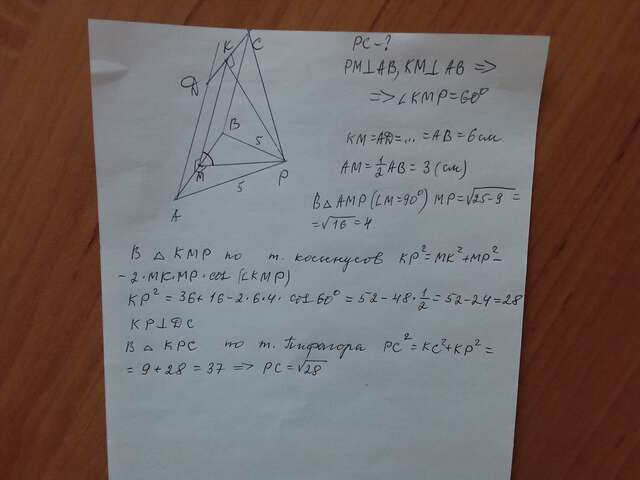 PC-?
PM⊥AB, KM⊥AB =>
=> ∠KMP=60°
KM=AD=...=AB=6см
AM=½AB=3(см)
В△AMP(∠M=90°) MP=√25-9=
=√16=4
K
C
D
B
5
M
P
5
A
В △ KMP по т. косинусов KP²=MK²+MP²-
-2·MK·MP·cos(∠KMP)
KP²=36+16-2·6·4·cos60°=52-48·½=52-24=28
KP⊥DC
В △ KPC по т. Пифагора PC²=KC²+KP²=
=9+28=37 => PC=√28